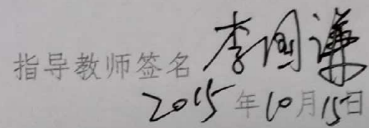 指导教师签名 李国谦
2015年10月15日